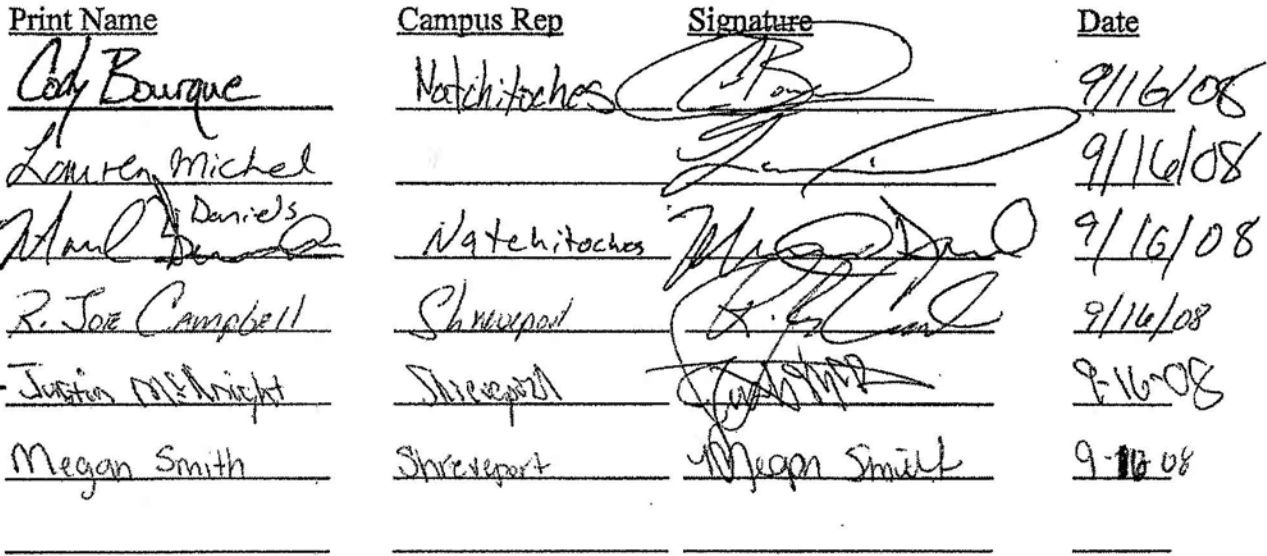 Print Name Campus Rep Signature Date
Cody Bourque Natchitoches 9/16/08
Lauren Michel 9/16/08
Daniels Natchitoches 9/16/08
R. Joe Campbell Shreveport 9/16/08
Justin McKnight Shreveport 9-16-08
Megan Smith Shreveport Megan Smith 9-16-08